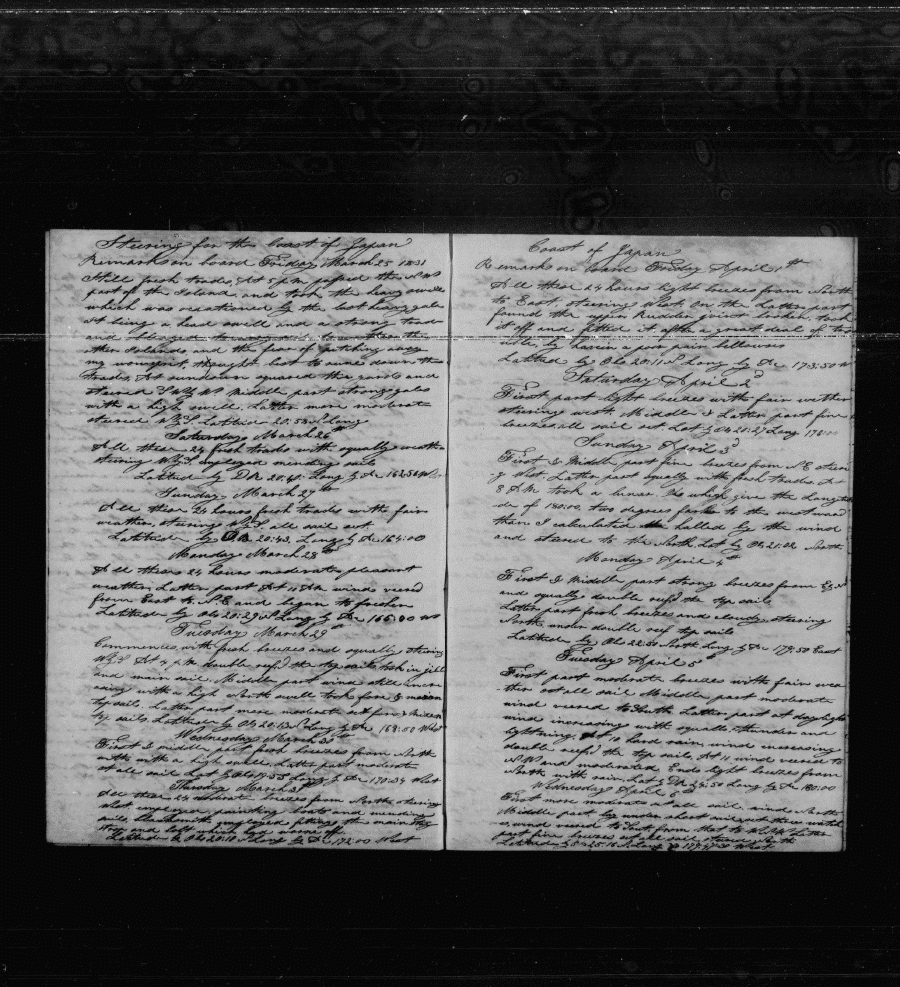 Steering for the Coast of Japan
Remarks on board Friday March 25 1831
Still fresh trades, At 5 P.M. passed the NW
part of the Island and took the heavy swell
which was occationed by the last heavy gale
it being a head swell and a strong trade
and
other Islands and the fear of
my thought best to run down the
trades, At sundown squared the yards and
steered Middle part strong gales
with a high swell, Latter more moderate
steered WbyS Latitude 20:55 Long
Saturday March 26
All these 24 fresh trades with squally weather
steering WbyS employed mending sails
Latitude by DR 20:41 Long by Dr
Sunday March 27th
All these 24 hours fresh trades with fair
weather, steering WbyS, all sail out
Latitude by 20:43, Long by Dr 164:00
Monday March 28th
All theirs 24 hours moderate pleasant
weather, Latter part At 11 AM winds veered
from East to N.E and began to freshen
Latitude by Obs 20:29 N Long by Dr 166:00 W
Tuesday March 29th
Commences with fresh breezes and squally steering
WbyS At 4 P.M. double reefd the top sails took in jibb
and main sail, Middle part wind still incre
asing with a high North swell took fore & mizen
top sails, Latter part more moderate set fore & mizen
top sails, Latitude by Obs 20:13 Long by Dr 168:00 West
Wednesday March 30th
First & middle part fresh breezes from North
with a high swell, Latter part moderate
set all sail Lat by Obs 19:55 Long by Dr 170:34 West
Thursday March 31
All these 24 moderate breezes from North steering
West, employed painting boat and mending
sails blacksmith employed fitting the
and left which was
Latitude by Obs 20:10 Long by Dr 172:00 West
Coast of Japan
Remarks on board Friday April 1st
All these 24 hours light breezes from North
to East, steering West, On the latter part
found the upper Rudder joint broken, took
it off and fitted it after a great deal of tro
uble by haven a poor pair bellowses
Latitude by Obs 20:11 Long by Dr 173:50 W
Saturday April 2d
First part light breezes with fair weather
steering west Middle & Latter part fine
breezes all sail out Lat by Obs 20:27 Long 176:
Sunday April 3d
First & Middle part fine breezes from N.E steeri
g West, Latter part squally with fresh trades, At
8 A.M. took a lunar, No which give the Longitu
de of 180:00, two degrees farther to the westward
than I calculated halled by the wind
and steered to the North, Lat by Obs 21:02 North
Monday April 4th
First & Middle part strong breezes from
and squally double reefd the top sails
Latter part fresh breezes and cloudy steering
North under double reef top sails
Latitude by Obs 22:50 North Long by Dr 179:50 East
Tuesday April 5th
First part moderate breezes with fair wea
ther set all sail Middle part moderate
wind veered to South Latter part at daylight
wind increasing with squalls, thunder and
lightning, At 10 hard rain, wind increasing
double reefd the top sails, At 11 wind veered to
N.W and moderated, Ends light breezes from
North with rain, Lat by DR 24:50 Long by Dr 180:00
Wednesday April 6th
First more moderate set all sail, wind North
Middle part by under short sail
wind veered to East from that to Latter
part fine breezes all sail steering North
Latitude by Obs 25:16 Long by 179:47:30 West